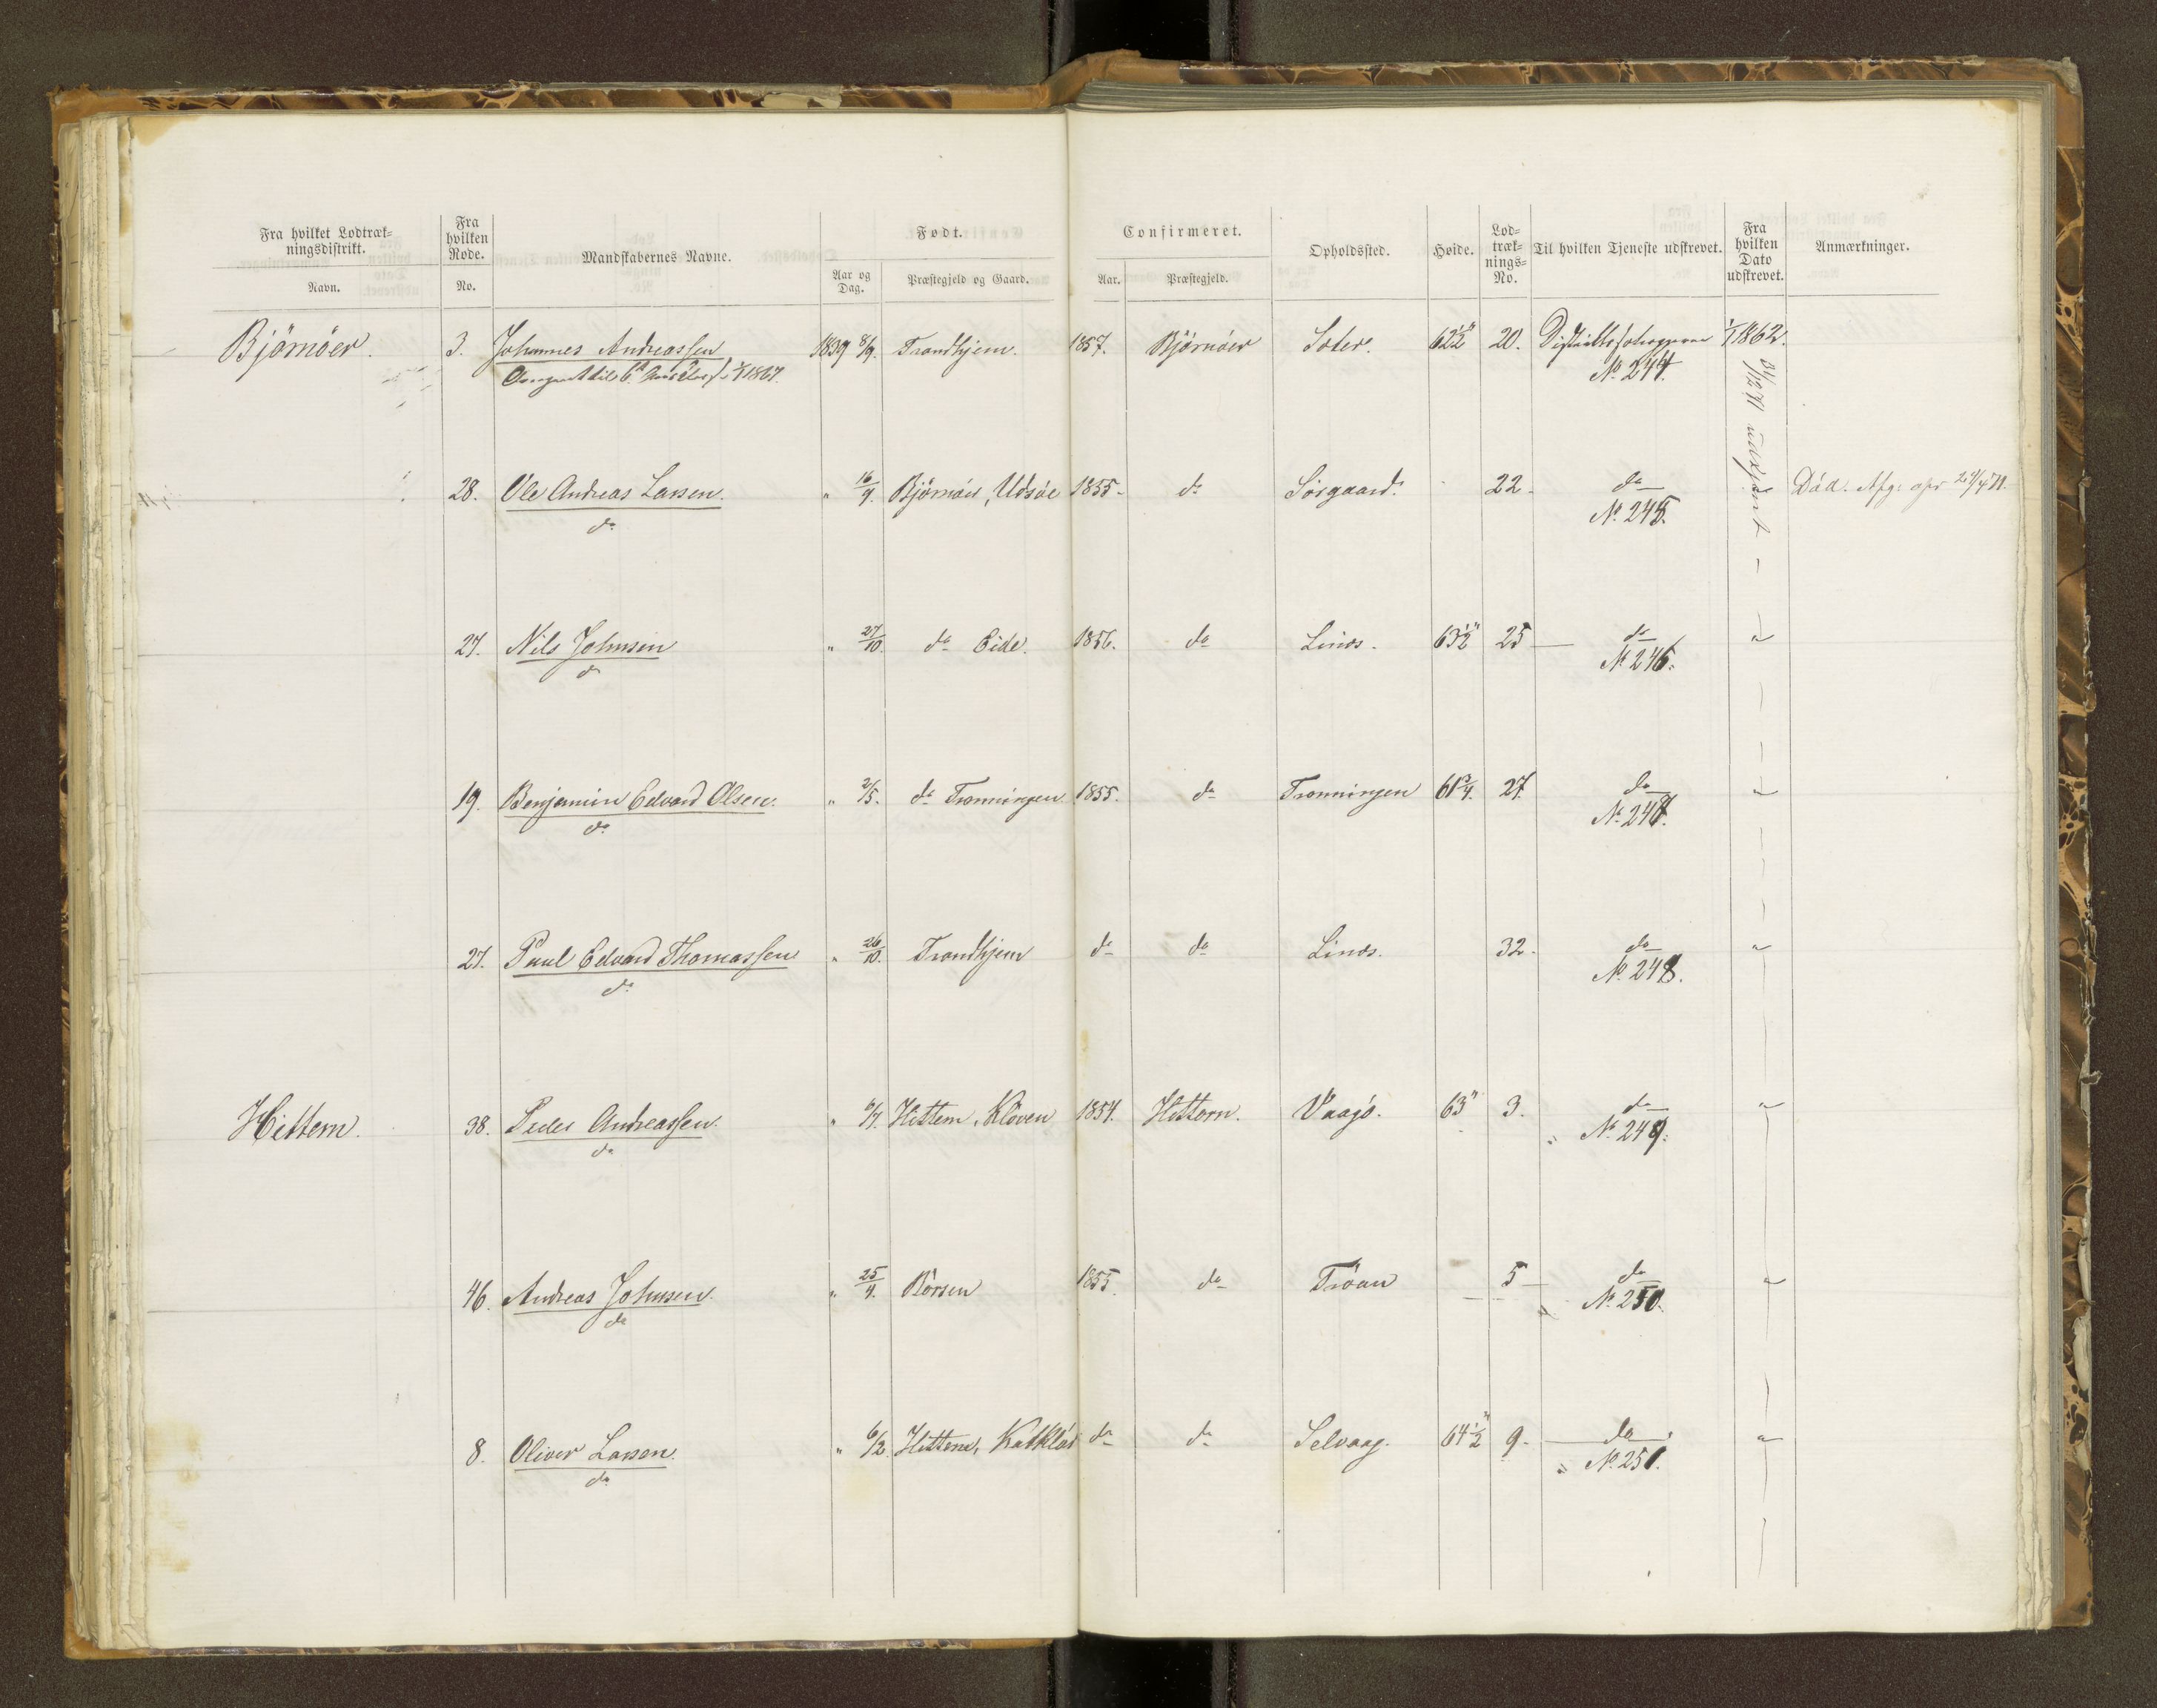 Fra hvilket Lodtræk-
ningsdistrikt.
Navn.
Fra
hvilken
Rode.
No.
Mandskabernes Navne.
Født.
Aar og
Dag.
Præstegjeld og Gaard.
Confirmeret.
Aar.
Præstegjeld.
Opholdssted.
Høide.
Lod-
træk-
nings-
No.
Til hvilken Tjeneste udskrevet.
Fra
hvilken
Dato
udskrevet.
Anmærkninger.
Bjørnöer. 3. Johannes Andreassen 1839 8/9. Trondhjem. 1857. Björnöer Sæter. 62½" 20. 1/1 1862.
1/1 1867. No 244.
31/12 71
28. Ole Andreas Larsen. " 16/9. Björnöer, Udsöe 1855. do Sörgaard. 22. do Död. Afg. 24/4 71.
do No 245.
27. Nils Johnsen " 27/10. do Eide. 1856. do Linæs. 63½" 25 do "
do No 246.
19. Benjamin Edvard Olsen. " 2/5. do Tranningen 1855. do Tranningen 61¾. 27 do "
do No 247.
27. Paul Edvard Thomassen " 26/10. Trondhjem do do Linæs. 32. do "
do No 248.
Hittern. 38. Peder Andreassen. " 6/7. Hittern, Klöven 1854. Hittern. Vaagö. 63" 3. do "
do " No 249.
46. Andreas Johnsen. " 25/4. Börsen 1855. do Tröan 5 do "
do " No 250.
8. Oliver Larsen. " 6/2. Hittern, do do Selvaag. 64½" 9. do "
do " No 251.